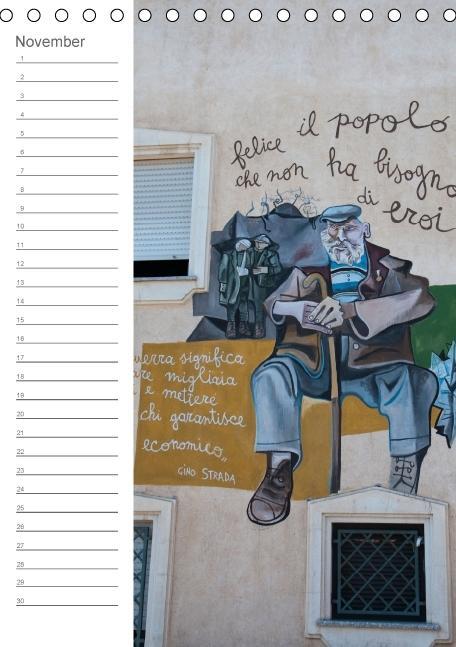 November
1
2
3
4
5
6
7
8
9
10
11
12
13
14
15
16
17
18
19
20
21
22
23
24
25
26
27
28
29
30
felice il popolo
che non ha bisogno
di eroi
guerra significa
re migliaia
e mettere
chi garantisce
economico„
GINO STRADA